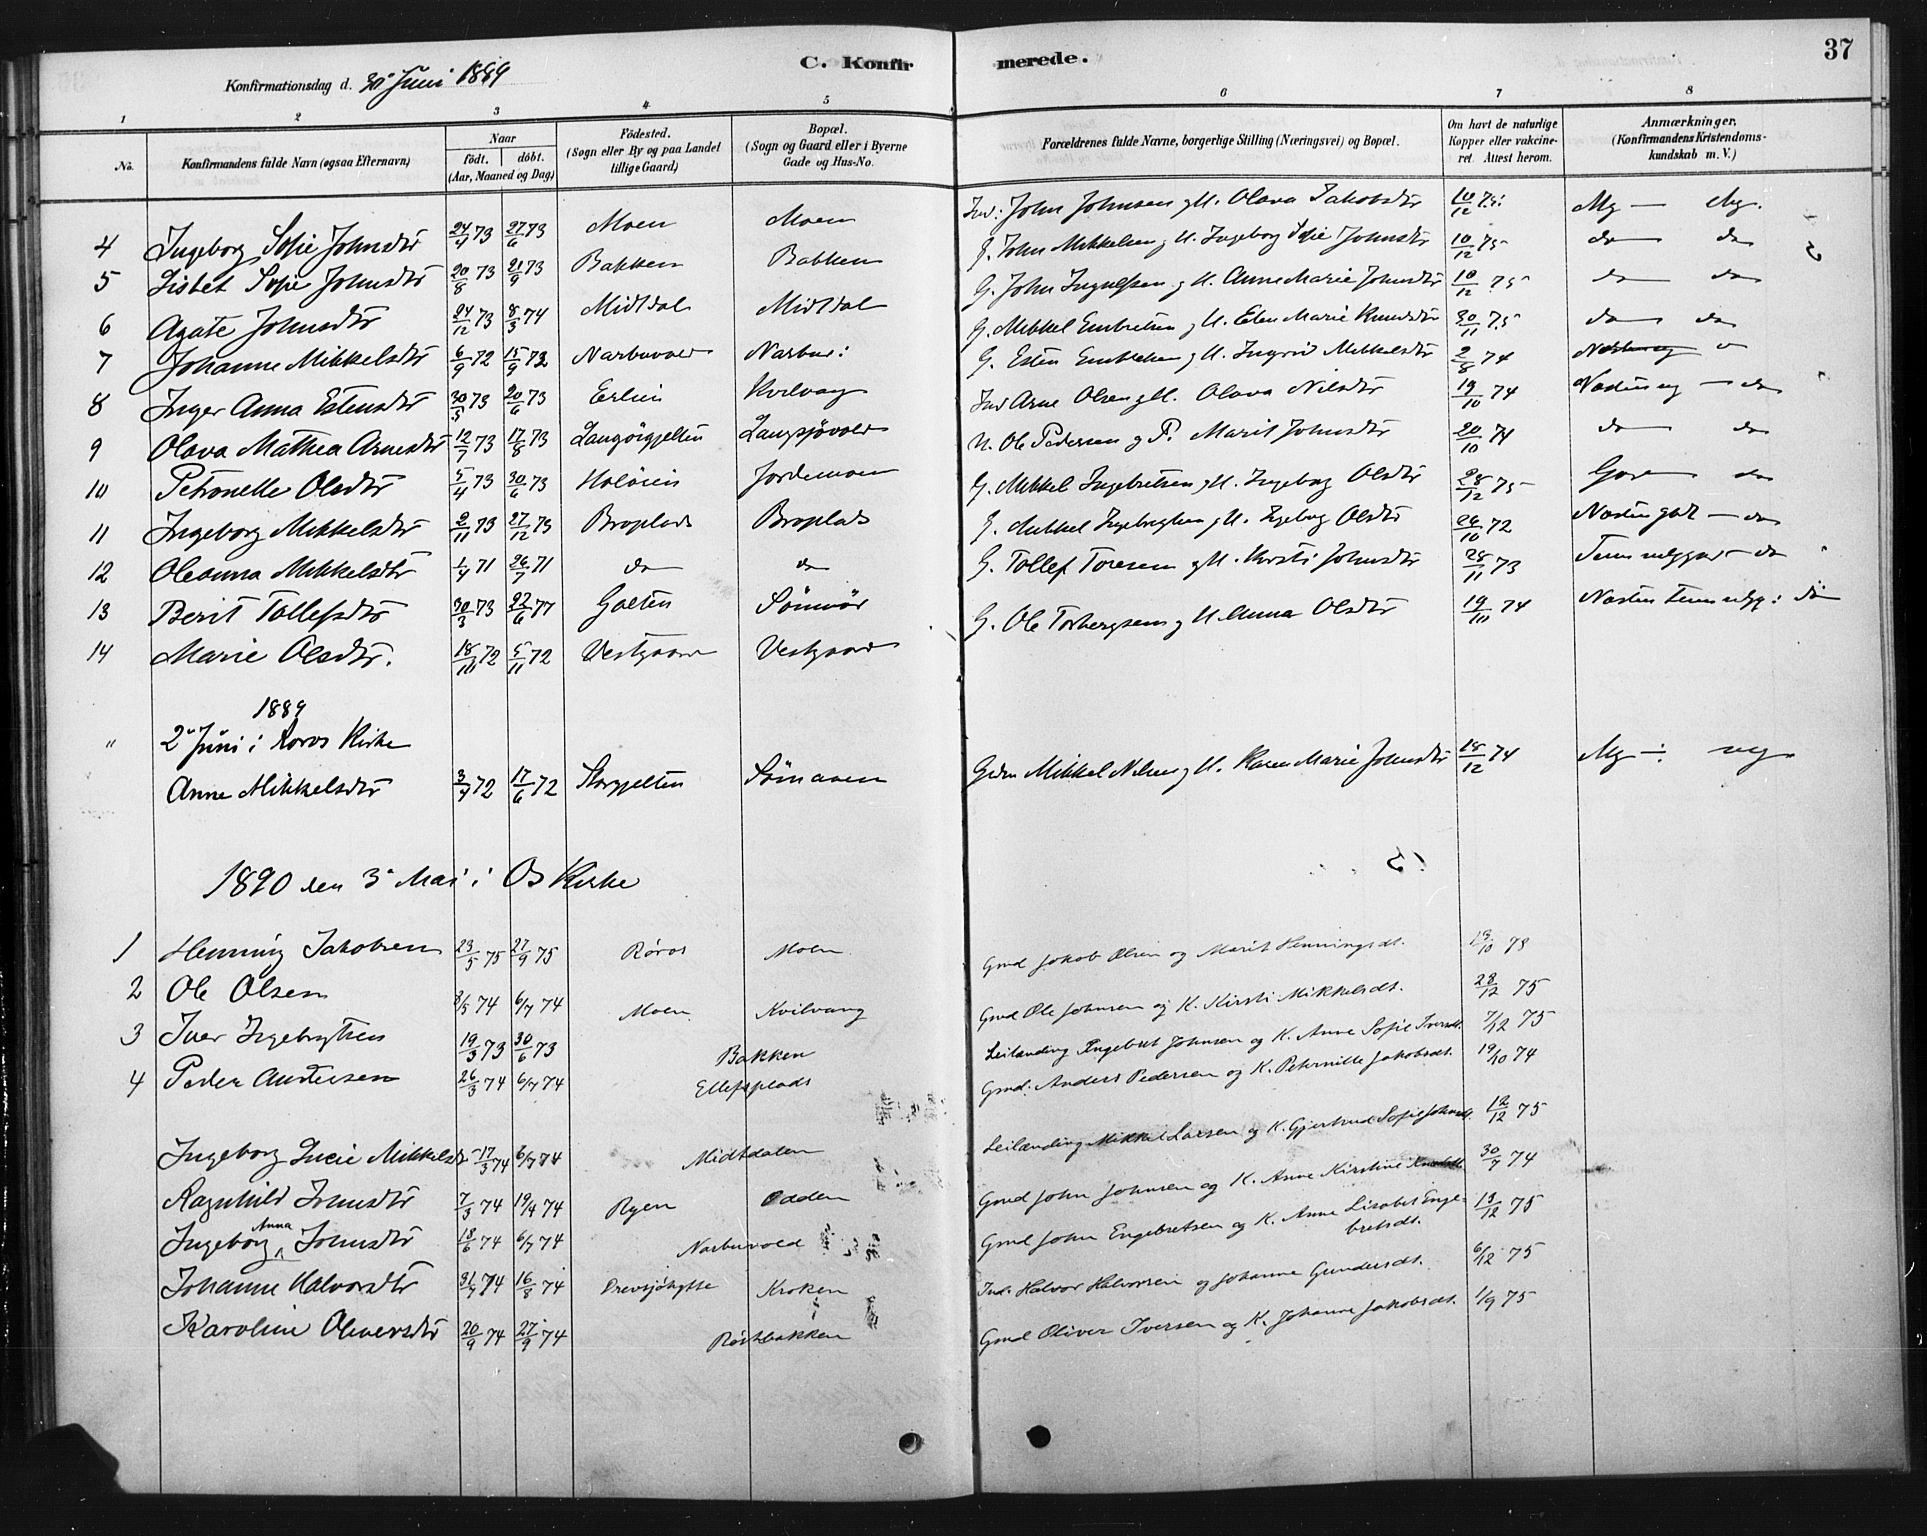 37
C. Konfirmerede.
Konfirmationsdag d. 30 Juni 1889
1 2 3 4 5 6 7 8
No. Konfirmandens fulde Navn (ogsaa Efternavn) Naar födt. döbt. (Aar, Maaned og Dag) Födested. (Sogn eller By og paa Landet tillige Gaard) Bopæl. (Sogn og Gaard eller i Byerne Gade og Hus-No. Forældrenes fulde Navne, borgerlige Stilling (Næringsvei) og Bopæl. Om havt de naturlige Kopper eller vakcineret. Attest herom. Anmærkninger. (Konfirmandens Kristendomskundskab m. V.)
4 Ingeborg Sofie Johnsdtr 24/4 73 27/6 73 Moen Moen Ind: John Johnsen og K. Olava Jakobsdtr 10/12 75 Mg — Mg.
5 Lisbet Sofie Johnsdtr 20/8 73 21/9 73 Bakken Bakken G. John Mikkelsen og K. Ingeborg Sofie Johnsdtr 10/12 75 do do
6 Agate Johnsdtr 24/12 73 8/3 74 Midtdal Midtdal G. John Ingulfsen og K. Anne Marie Johnsdtr 10/12 75 do do
7 Johanne Mikkelsdtr 6/9 72 15/9 72 Narbuvold Narbuv: G. Mikkel Embretsen og K. Elen Marie Knudsdtr 30/11 75 do do
8 Inger Anna Estensdtr 30/3 73 20/6 73 Erlien Kvilvang G. Esten Embretsen og K. Ingrid Mikkelsdtr 2/8 74
9 Olava Mathea Arnesdtr 12/7 73 17/8 73 Langörgjelten Langsjøvold Ind Arne Olsen og K. Olava Nilsdtr 19/10 74 Næsten mg — do
10 Petronelle Olsdtr 5/4 73 30/6 73 Holöien Jordemoen N. Ole Pedersen og P. Marit Johnsdtr 20/10 74 do do
11 Ingeborg Mikkelsdtr 2/11 73 27/12 73 Broplads Broplads G. Mikkel Ingebretsen og K. Ingeborg Olsdtr 28/12 75 God do
12 Oleanna Mikkelsdtr 1/4 71 26/7 71 do do G. Mikkel Ingebrigtsen og K. Ingeborg Olsdtr 24/10 72 Næsten godt — do
13 Berit Tollefsdtr 30/3 73 22/6 77 Galten Sömoör G. Tollef Toresen og K. Kirsti Johnsdtr 28/11 73 do
14 Marie Olsdtr. 18/10 72 5/11 72 Vestgaard Vestgaard G. Ole Torbergsen og K. Anna Olsdtr 19/11 74
1889
" 2 Juni i Röros Kirke
Anne Mikkelsdtr 3/4 72 17/6 72 Storgjelten Sömoen Gdm Mikkel Nilsen og K. Karen Marie Johnsdtr 18/12 74 Mg — mg
1890 den 3 Mai i Os Kirke
1 Henning Jakobsen 23/5 75 27/9 75 Røros Moen Gmd Jakob Olsen og Marit Henningsdt. 19/10 78
2 Ole Olsen 3/5 74 6/7 74 Moen Kvilvang Gmd Ole Johnsen og K. Kirsti Mikkelsdt. 28/12 75
3 Iver Ingebrigtsen 19/3 73 30/6 73 Bakken Leilænding Engebret Johnsen og K. Anne Sofie Iversdt. 7/12 75
4 Peder Andersen 26/3 74 6/7 74 Ellefsplads Gmd. Anders Pedersen og K. Peternille Jakobsdt. 19/10 74
Ingeborg Lucie Mikkelsdtr 17/3 74 6/7 74 Midtdalen Leilænding Mikkel Larsen og K. Gjertrud Sofie Johnsdt. 12/12 75
Ragnhild Johnsdtr 7/3 74 19/4 74 Ryen Odden Gmd John Johnsen og K. Anne Kirstine 30/7 74
Ingeborg Anna Johnsdtr 18/6 74 6/7 74 Narbuvold Gmd John Engebretsen og K. Anne Lisabet Engebretsdt. 13/12 75
Johanne Halvorsdtr 31/7 74 16/8 74 Drevsjøhytte Kroken Ind. Halvor Halvorsen og Johanne Gundersdt. 6/12 75
Karoline Oliversdtr 20/9 74 27/9 74 Røstbakken Gmd Oliver Iversen og K. Johanne Jakobsdt. 1/9 75